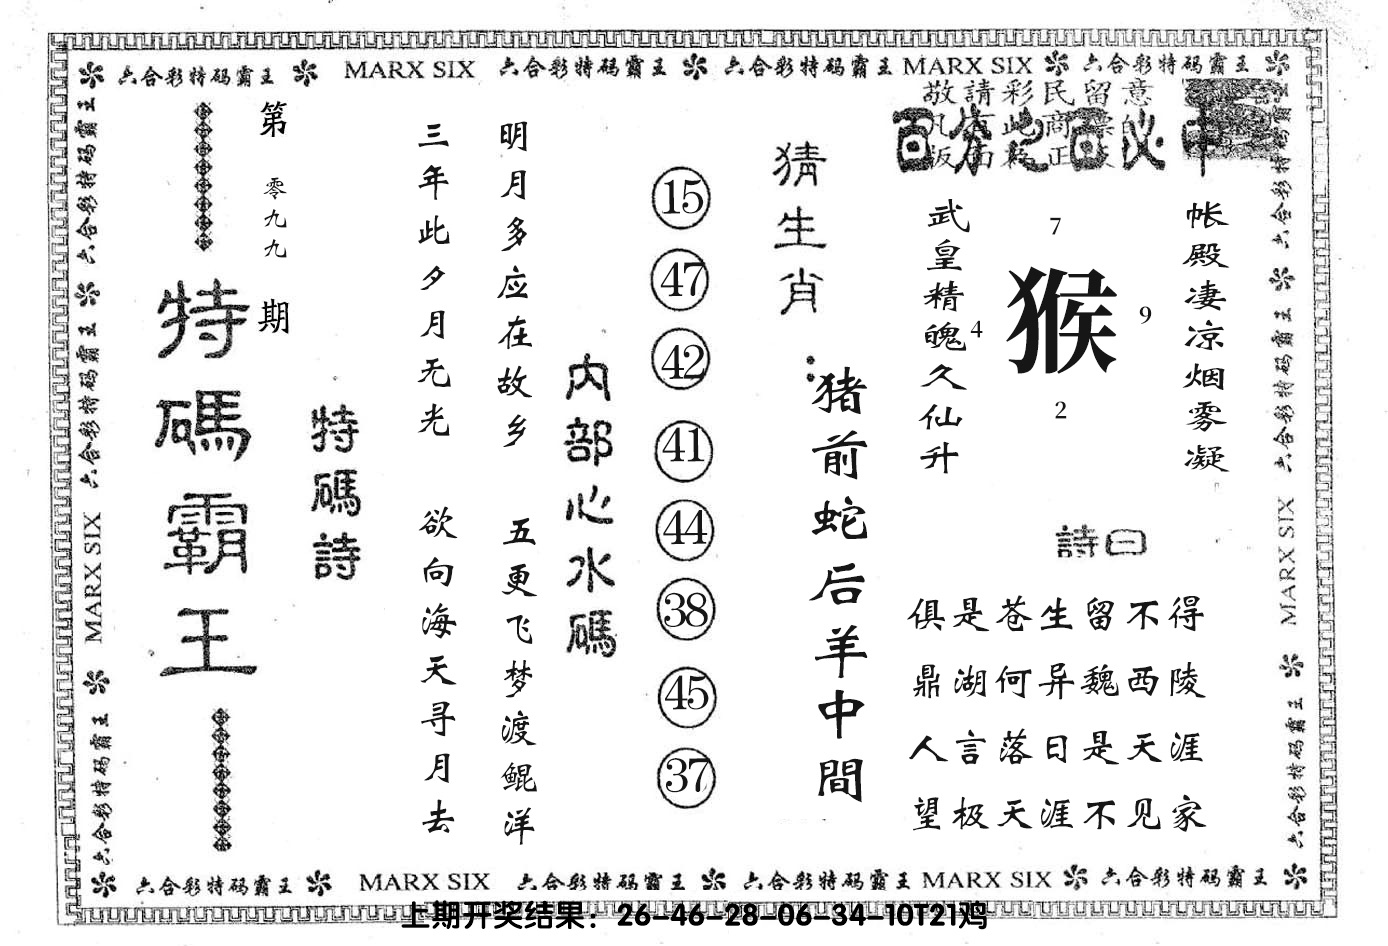 六合彩特码霸王 MARX SIX 六合彩特码霸王 六合彩特码霸王 MARX SIX 六合彩特码霸王
六合彩特码霸王
六合彩特码霸王
MARX SIX
六合彩特码霸王
第零九九期
特碼霸王
特碼詩
三年此夕月无光
明月多应在故乡
欲向海天寻月去
五更飞梦渡鲲洋
内部心水碼
15
47
42
41
44
38
45
37
猜生肖：
猪前蛇后羊中間
敬請彩民留意
百分之百必中
武皇精魄久仙升
7
4
猴
9
2
帐殿凄凉烟雾凝
詩曰
俱是苍生留不得
鼎湖何异魏西陵
人言落日是天涯
望极天涯不见家
六合彩特码霸王
六合彩特码霸王
MARX SIX
六合彩特码霸王
六合彩特码霸王 MARX SIX 六合彩特码霸王 六合彩特码霸王 MARX SIX 六合彩特码霸王
上期开奖结果：26-46-28-06-34-10T21鸡